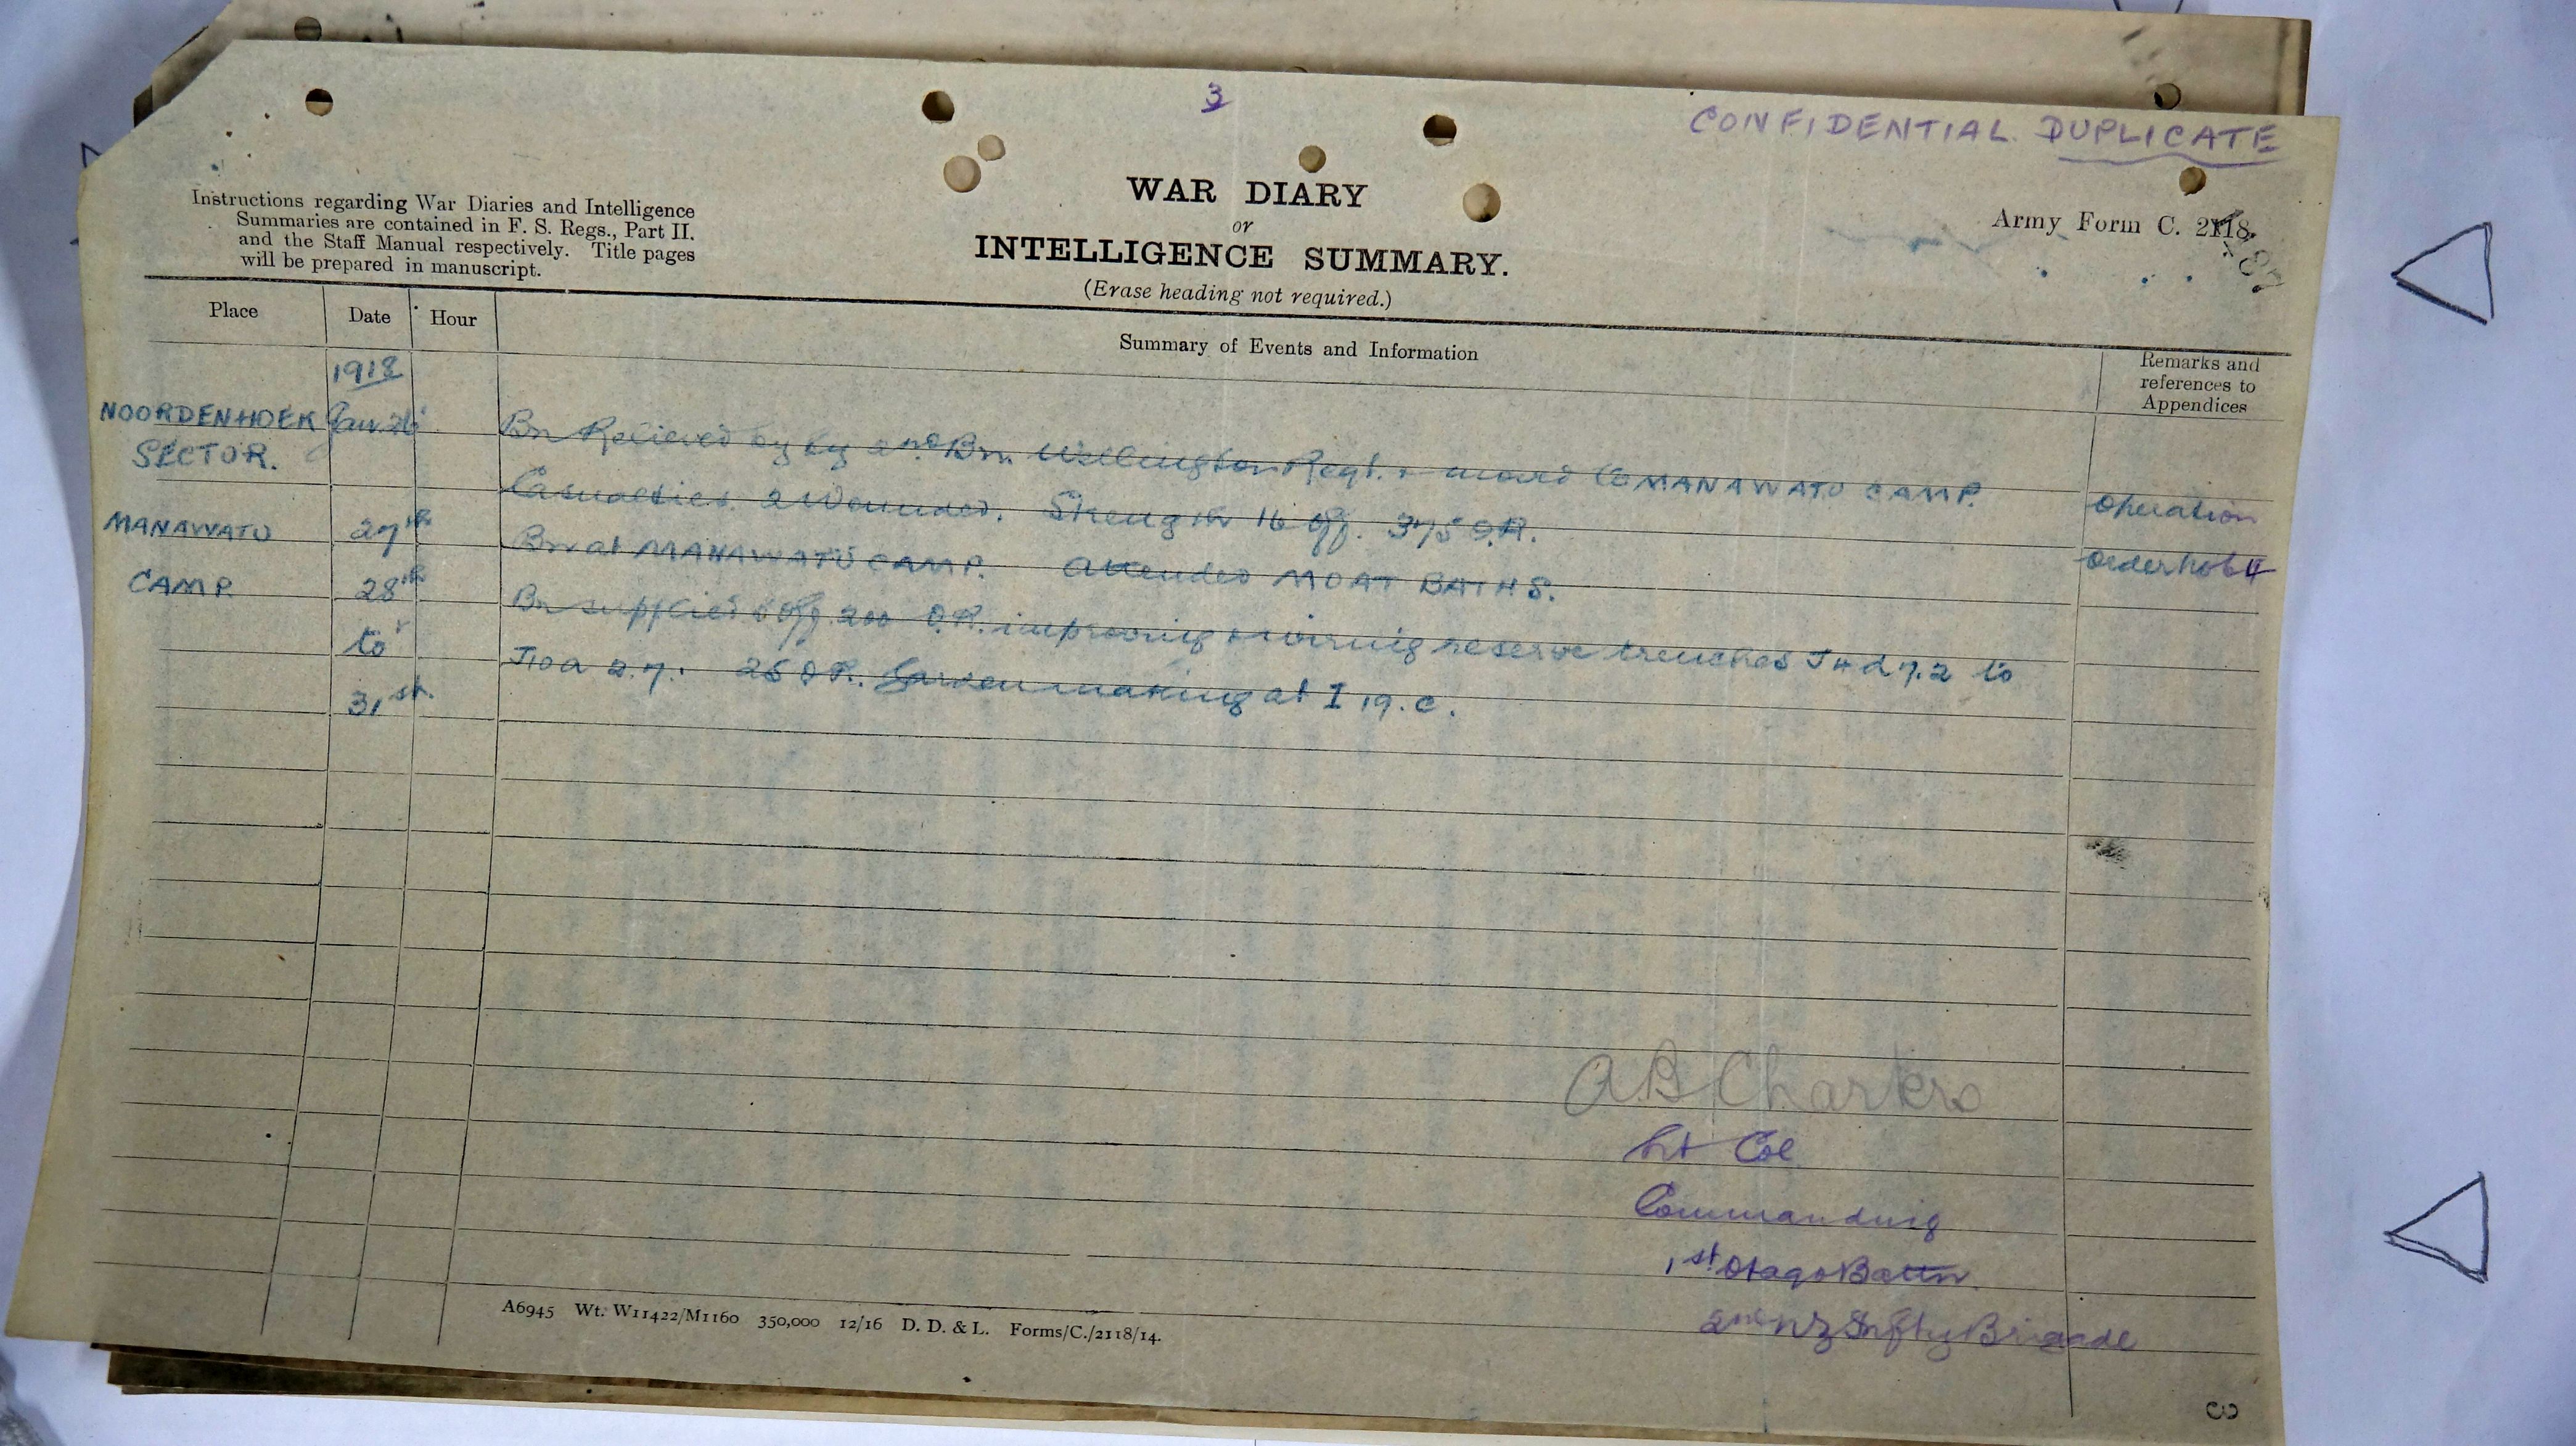 3
CONFIDENTIAL DUPLICATE
Instructions regarding War Diaries and Intelligence
Summaries are contained in F. S. Regs., Part II.
and the Staff Manual respectively. Title pages
will be prepared in manuscript.
WAR DIARY
or
INTELLIGENCE SUMMARY.
(Erase heading not required.)
Army Form C. 2118.
Place Date Hour Summary of Events and Information Remarks and
references to
Appendices
1918
NOORDENHOEK Jan. 26 Bn Relieved by by 2nd Bn. Wellington Regt. & moved to MANAWATU CAMP.
SECTOR. Casualties 2 Wounded. Strength 16 Off. 375 O.R. Operation
MANAWATU 27th Bn at MANAWATU CAMP. Attended MOAT BATHS. Order No 64
CAMP. 28th Bn supplied Off. 200 O.R. improving & wiring reserve trenches J 4 d 7.2 to
to J10a 2.7. 25 O.R. Garden making at I 19.c.
31st.
A B Charters
Lt Col
Commanding
1st Otago Battn
2nd NZ Infty Brigade
A6945 Wt. W11422/M1160 350,000 12/16 D. D. & L. Forms/C./2118/14.
3